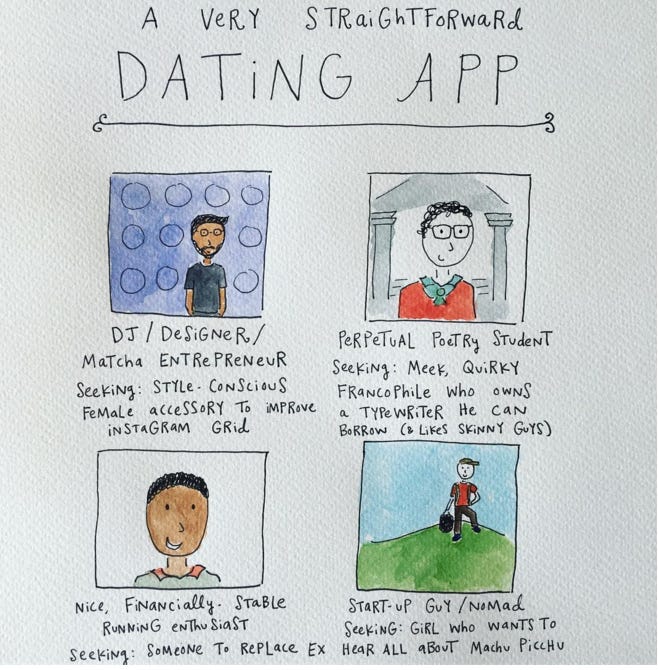 A VERY STRAIGHTFORWARD
DATING APP
DJ/DESIGNER/
MATCHA ENTREPRENEUR
SEEKING: STYLE-CONSCIOUS
FEMALE ACCESSORY TO IMPROVE
INSTAGRAM GRID
PERPETUAL POETRY STUDENT
SEEKING: MEEK, QUIRKY
FRANCOPHILE WHO OWNS
A TYPEWRITER HE CAN
BORROW (& LIKES SKINNY GUYS)
NICE, FINANCIALLY-STABLE
RUNNING ENTHUSIAST
SEEKING: SOMEONE TO REPLACE EX
START-UP GUY/NOMAD
SEEKING: GIRL WHO WANTS TO
HEAR ALL ABOUT MACHU PICCHU